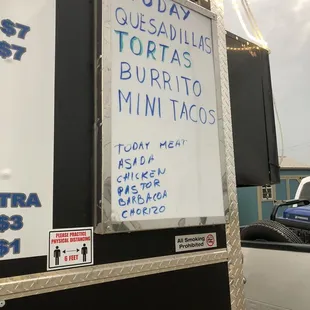 TODAY
QUESADILLAS
TORTAS
BURRITO
MINI TACOS
TODAY MEAT
ASADA
CHICKEN
PASTOR
BARBACOA
CHORIZO
$7
$7
XTRA
$3
$1
PLEASE PRACTICE
PHYSICAL DISTANCING
6 FEET
Smoking
Prohibited